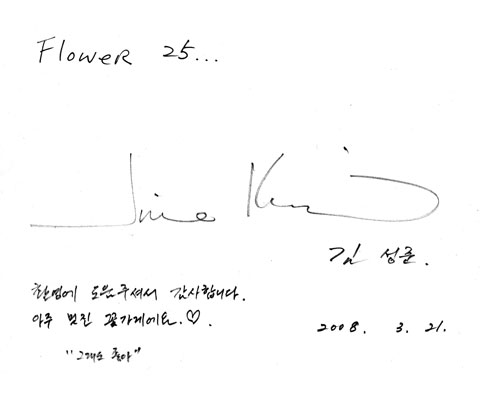 Flower 25...
June Kim
김 성준.
촬영에 도와주셔서 감사합니다.
아주 멋진 꽃가게에요.♡.
2008. 3. 21.
"그래도 좋아"